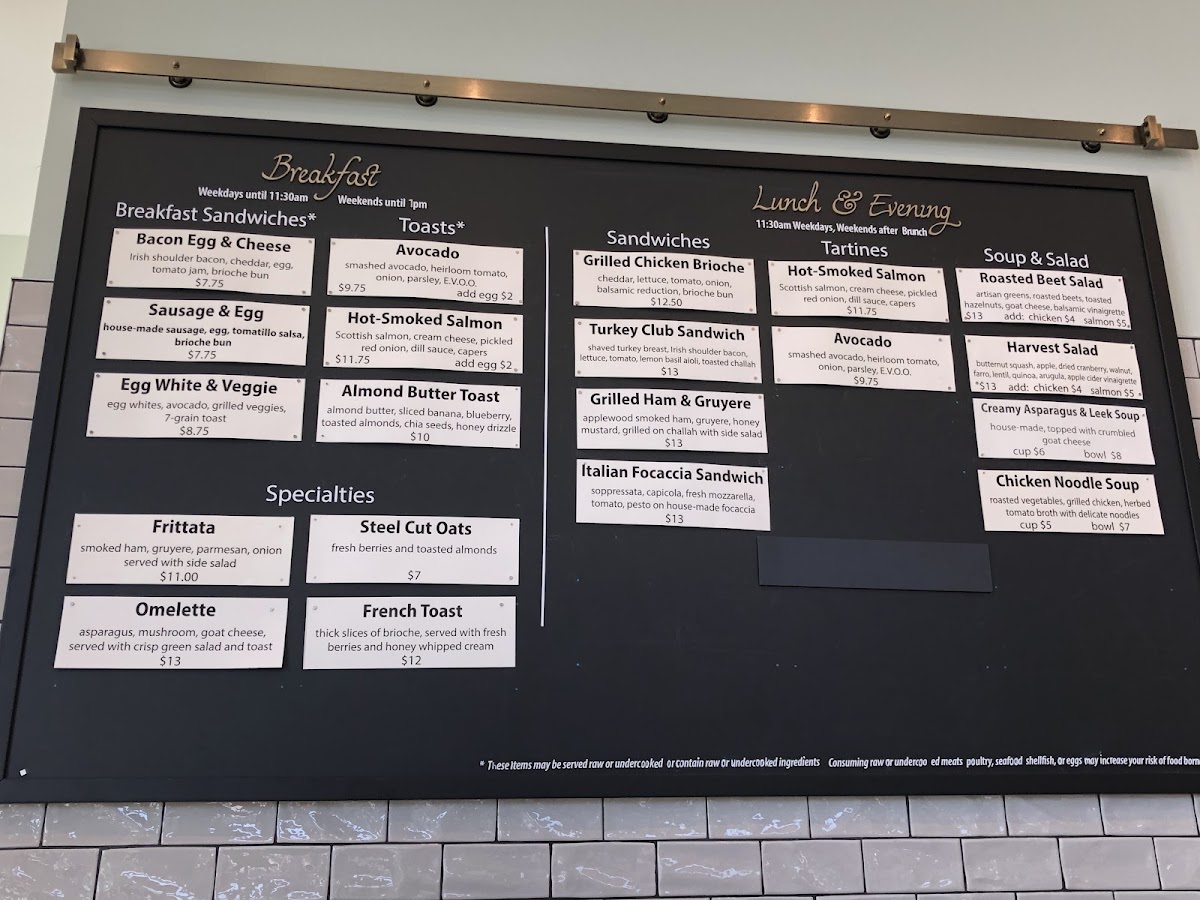 Breakfast
Weekdays until 11:30am Weekends until 1pm
Breakfast Sandwiches*
Bacon Egg & Cheese
Irish shoulder bacon, cheddar, egg,
tomato jam, brioche bun
$7.75
Sausage & Egg
house-made sausage, egg, tomatillo salsa,
brioche bun
$7.75
Egg White & Veggie
egg whites, avocado, grilled veggies,
7-grain toast
$8.75
Toasts*
Avocado
smashed avocado, heirloom tomato,
onion, parsley, E.V.O.O.
$9.75 add egg $2
Hot-Smoked Salmon
Scottish salmon, cream cheese, pickled
red onion, dill sauce, capers
$11.75 add egg $2
Almond Butter Toast
almond butter, sliced banana, blueberry,
toasted almonds, chia seeds, honey drizzle
$10
Specialties
Frittata
smoked ham, gruyere, parmesan, onion
served with side salad
$11.00
Omelette
asparagus, mushroom, goat cheese,
served with crisp green salad and toast
$13
Steel Cut Oats
fresh berries and toasted almonds
$7
French Toast
thick slices of brioche, served with fresh
berries and honey whipped cream
$12
Lunch & Evening
11:30am Weekdays, Weekends after Brunch
Sandwiches
Grilled Chicken Brioche
cheddar, lettuce, tomato, onion,
balsamic reduction, brioche bun
$12.50
Turkey Club Sandwich
shaved turkey breast, Irish shoulder bacon,
lettuce, tomato, lemon basil aioli, toasted challah
$13
Grilled Ham & Gruyere
applewood smoked ham, gruyere, honey
mustard, grilled on challah with side salad
$13
Italian Focaccia Sandwich
soppressata, capicola, fresh mozzarella,
tomato, pesto on house-made focaccia
$13
Tartines
Hot-Smoked Salmon
Scottish salmon, cream cheese, pickled
red onion, dill sauce, capers
$11.75
Avocado
smashed avocado, heirloom tomato,
onion, parsley, E.V.O.O.
$9.75
Soup & Salad
Roasted Beet Salad
artisan greens, roasted beets, toasted
hazelnuts, goat cheese, balsamic vinaigrette
$13 add: chicken $4 salmon $5
Harvest Salad
butternut squash, apple, dried cranberry, walnut,
farro, lentil, quinoa, arugula, apple cider vinaigrette
*$13 add: chicken $4 salmon $5
Creamy Asparagus & Leek Soup
house-made, topped with crumbled
goat cheese
cup $6 bowl $8
Chicken Noodle Soup
roasted vegetables, grilled chicken, herbed
tomato broth with delicate noodles
cup $5 bowl $7
* These Items may be served raw or undercooked or contain raw or undercooked ingredients Consuming raw or undercoo ed meats poultry, seafood shellfish, or eggs may increase your risk of food born